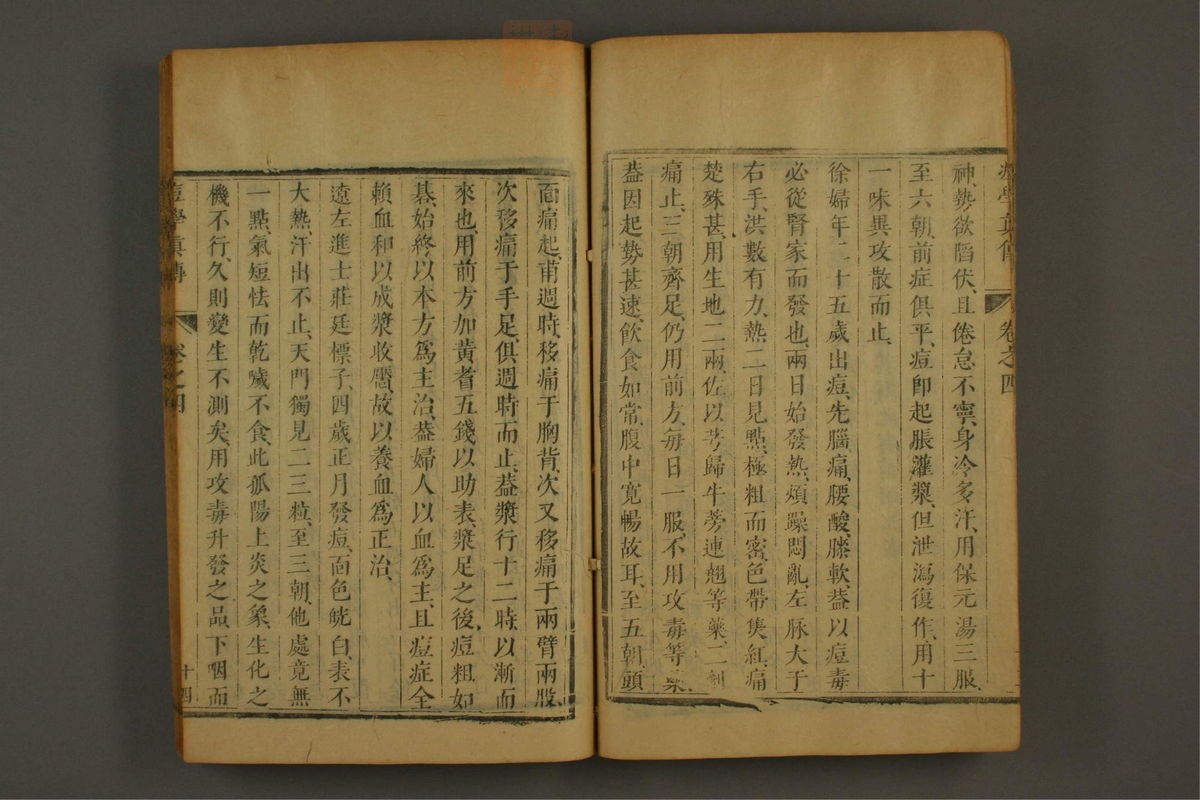 痘學真傳 卷之四
神勢欲陷伏、且倦怠不寧、身冷多汗、用保元湯三服、
至六朝、前症俱平、痘卽起脹灌漿、但泄瀉復作、用十
一味異攻散而止、
徐婦年二十五歲出痘、先腦痛、腰酸、膝軟、葢以痘毒
必從腎家而發也、兩日始發熱、煩躁悶亂、左脉大于
右手、洪數有力、熱二日見點、極粗而密、色帶焦紅、痛
楚殊甚、用生地二兩、佐以芎歸牛蒡連翹等藥、二朝
痛止、三朝齊足、仍用前方、每日一服、不用攻毒等藥、
葢因起勢甚速、飲食如常、腹中寛暢故耳、至五朝、頭
面痛起、甫週時、移痛于胸背、次又移痛于兩臂兩股、
次移痛于手足、俱週時而止、葢漿行十二時、以漸而
來也、用前方加黃耆五錢以助表、漿足之後、痘粗如
棊、始終以本方爲主治、葢婦人以血爲主、且痘症全
賴血和以成漿收靨、故以養血爲正治、
遼左進士莊廷標子、四歲正月發痘、面色皝白、表不
大熱、汗出不止、天門獨見二三粒、至三朝、他處竟無
一點、氣短怯而乾噦不食、此孤陽上炎之象、生化之
機不行、久則變生不測矣、用攻毒升發之品、下咽而
痘學眞傳 卷之四 十四